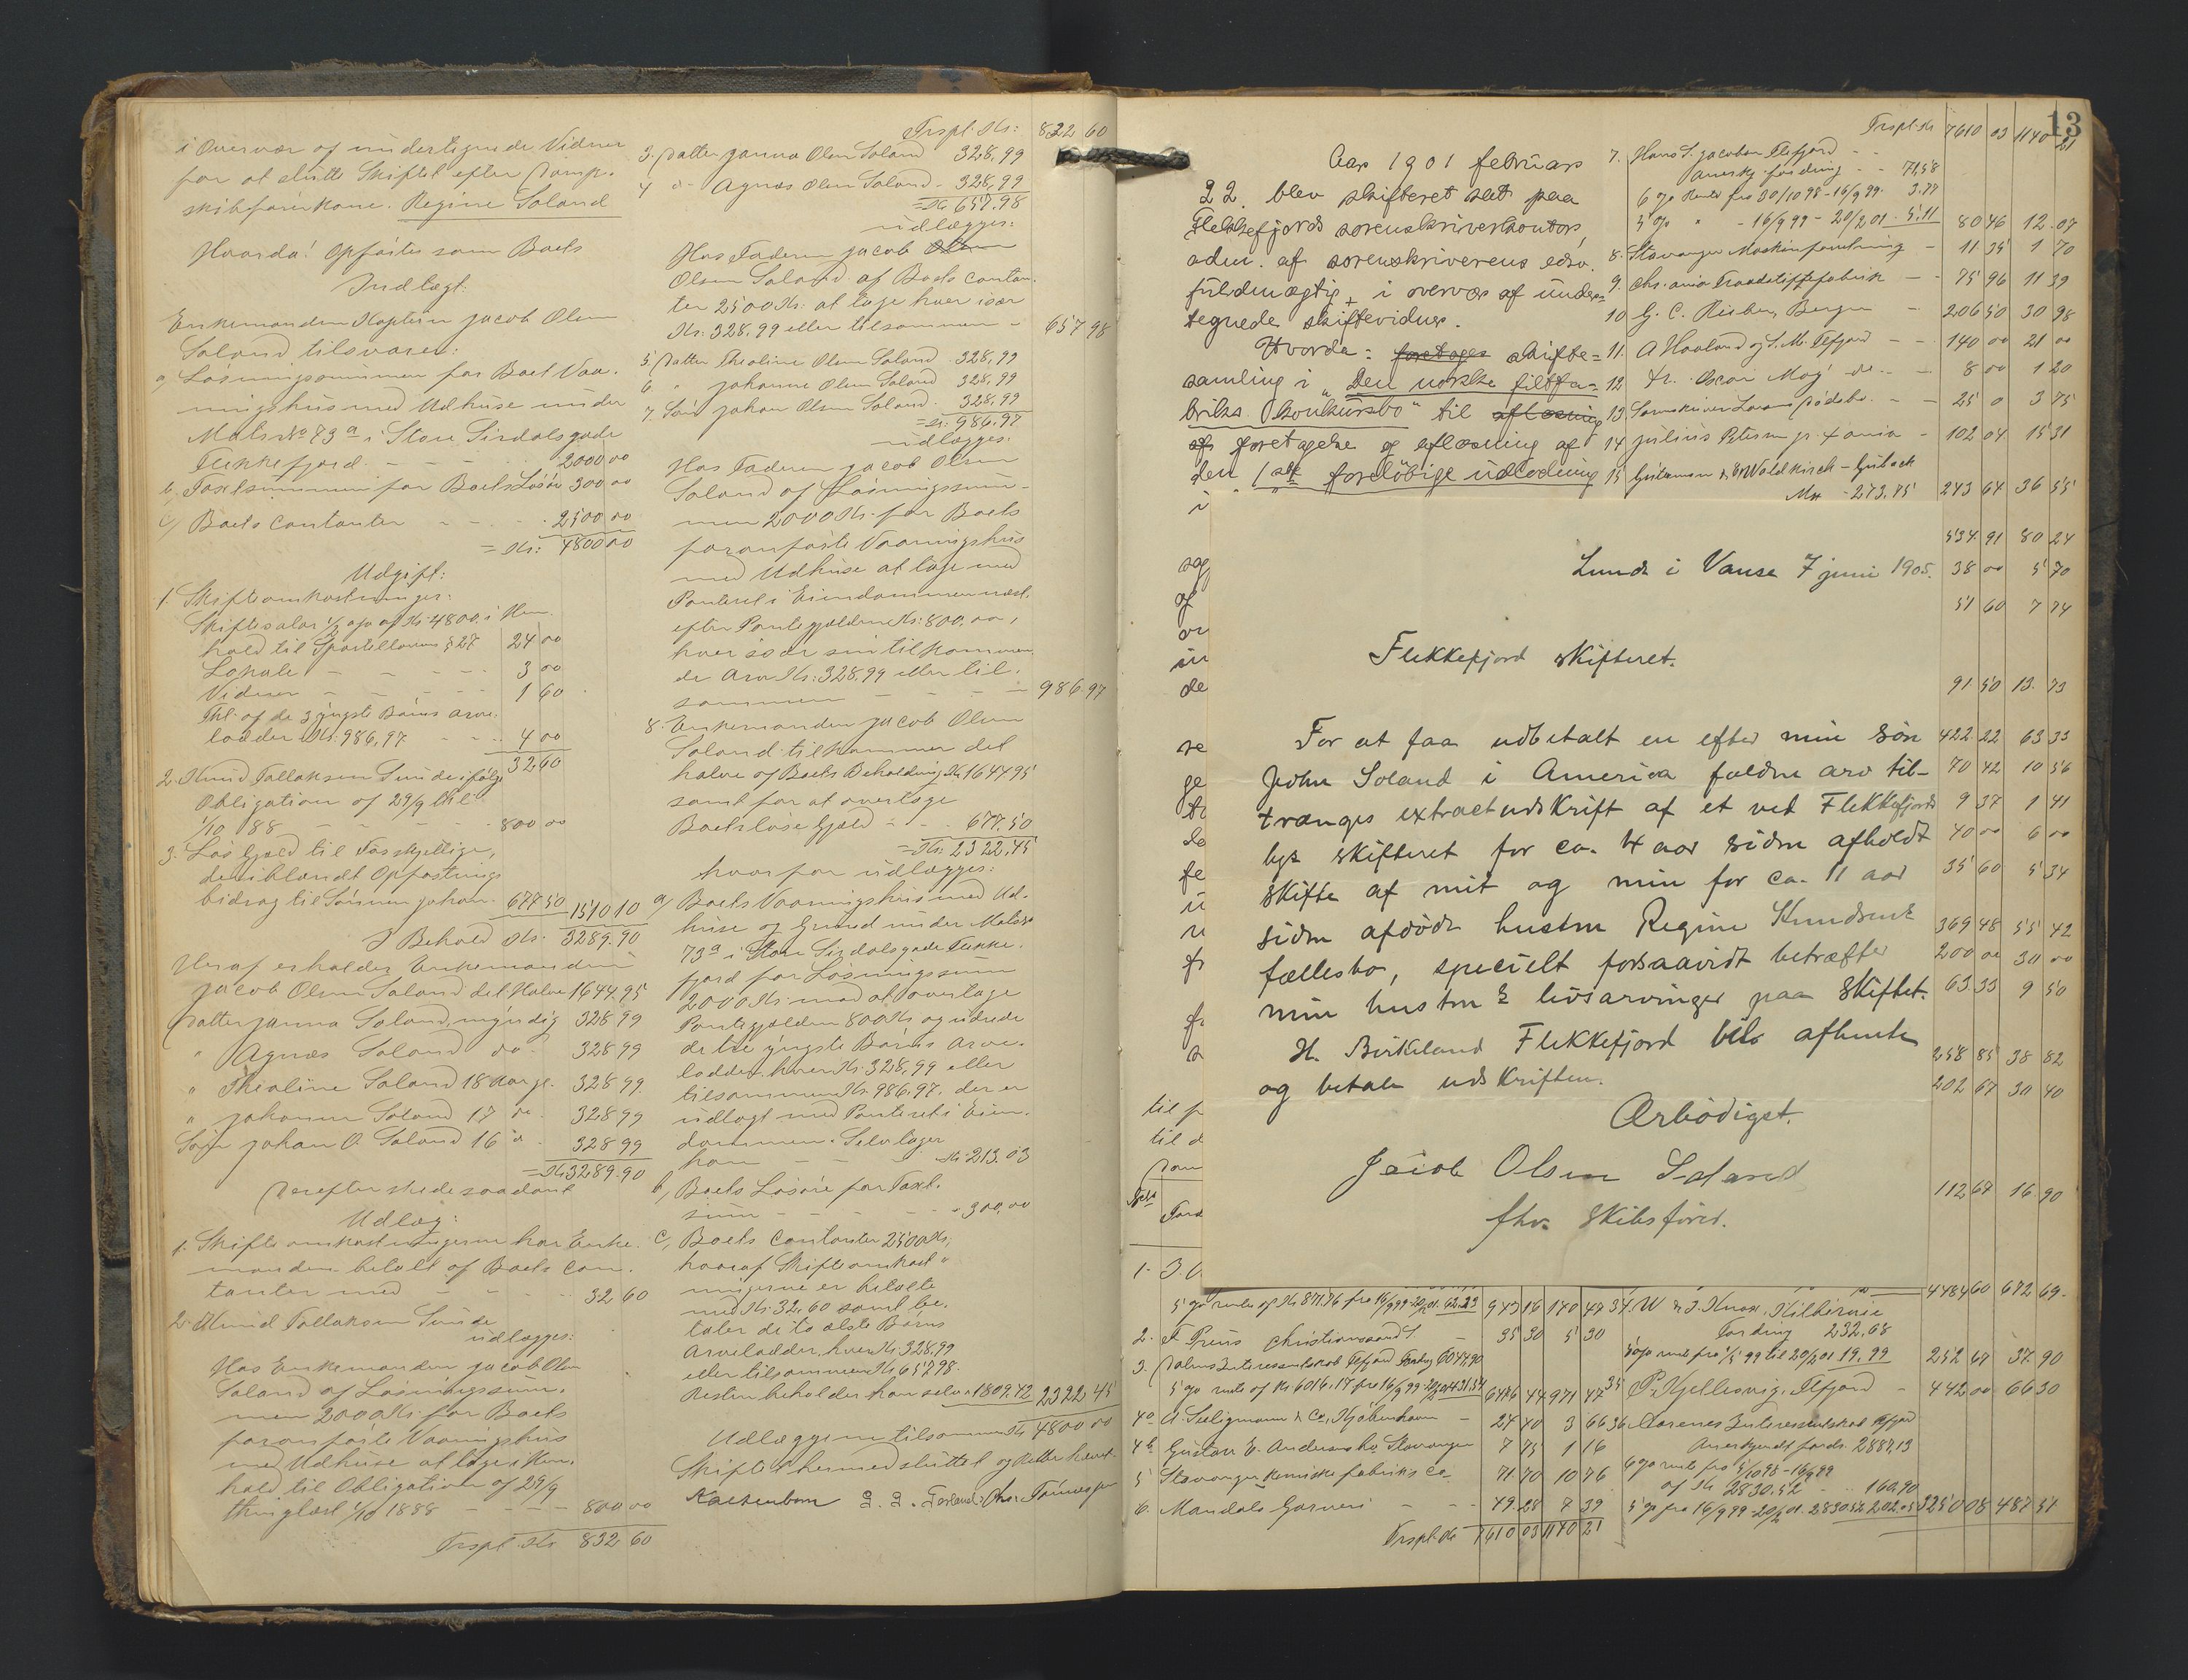 i Overvær af undertegnede Vidner
for at slutte Skiftet efter Damp-
skibsførerkone Regine Soland
Hvorda! Opførtes som Boets
Indtægt:
Enkemanden Kaptein Jacob Olsen
Soland tilsvarer:
a, Løsningssummen for Boets Vaa-
ningshus med Udhuse under
Matr. No 73a i Store Sirdalsgade
Flekkefjord - - - 2000 00
b, Taxtsummen for Boets Løsøre 300 00
c, Boets Contanter - - - 2500 00
= Kr: 4800 00
Udgift:
1. Skifteomkostninger:
Skiftesalær ½ o/o af Kr. 4800 i Hen-
hold til Sportelloven § 27 24 00
Lokale - - - 3 00
Vidner - - - 1 60
Thl. af de 3 yngste Børns Arve-
lodder Kr. 986,97 - - 4 00
32 60
2. Knud Tollaksen Sunde ifølge
Obligation af 29/9 thl.
1/10 88 - - - 800 00
3. Løs Gjæld til Forskjellige,
deriblandt Opfostrings
bidrag til Sønnen Johan - 677 50 1510 10
I Behold Kr. 3289.90
Heraf erholder Enkemanden
Jacob Olsen Soland det Halve 1644 95
Datter Janna Soland, myndig 328 99
" Agnes Soland do - 328 99
" Theoline Soland 18 Aar gl. 328 99
" Johanne Soland 17 do - 328 99
Søn Johan O. Soland 16 do - 328 99
= Kr 3289.90
Derefter skede saadant
Udlæg:
1. Skifteomkostningerne har Enke-
manden betalt af Boets Con-
tanter med - - - 32 60
2. Knud Tollaksen Sunde
udlægges:
Hos Enkemanden Jacob Olsen
Soland af Løsningssum-
men 2000 Kr. for Boets
foranførte Vaaningshus
med Udhuse at tage i Hen-
hold til Obligation af 29/9
thinglæst 1/10 1888 - - - 800 00
Trspt. Kr 832 60
Trspt. Kr: 832 60
3. Datter Janna Olsen Soland 328,99
4 do - Agnes Olsen Soland - 328,99
= Kr 657,98
udlægges:
Hos Faderen Jacob Olsen
Olsen Soland af Boets Contan-
ter 2500 Kr. at tage hver især
Kr. 328,99 eller tilsammen - 657 98
5 Datter Theoline Olsen Soland - 328,99
6. " Johanne Olsen Soland 328,99
7. Søn Johan Olsen Soland - 328,99
= Kr. 986,97
udlægges:
Hos Faderen Jacob Olsen
Soland af Løsningssum-
men 2000 Kr. for Boets
foranførte Vaaningshus
med Udhuse at tage med
Panteret i Eiendommen næst
efter Pantegjælden Kr. 800,00,
hver især sin tilkommen-
de Arv Kr. 328,99 eller til-
sammen - - - 986.97
8. Enkemanden Jacob Olsen
Soland tilkommer det
halve af Boets Beholdning Kr 1644 95
samt for at overtage
Boets løse Gjæld - - 677.50
= Kr. 2322,45
hvorfor udlægges:
a, Boets Vaaningshus med Ud-
huse og Grund under Matr. No
73a i Store Sirdalsgade Flekke-
fjord for Løsningssum
2000 Kr. mod at overtage
Pantegjælden 800 Kr og udrede
de tre yngste Børns Arve-
lodder, hver Kr. 328,99 eller
tilsammen Kr. 986.97, der er
udlagt med Panteret i Eien-
dommen. Selv tager
han - - - Kr. 213.03
b, Boets Løsøre for Taxt-
sum - - - - 300,00
c, Boets Contanter 2500 Kr,
hvoraf Skifteomkost-
ningerne er betalte
med Kr. 32.60 samt be-
taler de to ælste Børns
Arvelodder, hver Kr. 328,99
eller tilsammen Kr. 657.98.
Resten beholder han selv = 1809.42 2322 45
Udlæggene tilsammen Kr 4800 00
Skiftet hermed sluttet og Retten hævet.
13
Aar 1901 februar
22. blev skifteret sat paa
Flekkefjords sorenskriverkontor,
adm. af sorenskriverens edsv.
fuldmægtig, i overvær af under-
tegnede skiftevidner.
Hvorda: foretages skifte-
samling i "Den norske filtfa-
briks konkursbo" til aflæsning
af foretagelse og aflæsning af
den 1ste foreløbige udlodning
Trspt. Kr 7610 03 1140 21
7. Hans S. Jacobsen Flefjord - -
Anerkj. fordring - - 71,58
6 o/o Rente fra 30/10 98 - 16/9 99. 3.77
5 o/o " - 16/9 99 - 20/2 01 - 5.11 80 46 12.07
8. Stavanger Maskinforretning - 11.35 1 70
9. Chr.ania Traadstiftefabrik - - 75 96 11 39
10 G. C. Rieber, Bergen - 206 50 30 98
11. A Haaland og S. M. Flefjord - - 140 00 21 00
12. 8 00 1 20
13 25 0 3 75
14 Julius Petersen jr. X.ania - 102 04 15 31
15 Mk - 273.75 243 64 36 55
534 91 80 24
38 00 5 70
51 60 7 74
91 50 13. 73
422. 22 63 33
70 42 10 56
9 37 1 41
40 00 6 00
35 60 5 34
369 48 55 42
200 00 30 00
63.33 9 50
258 85 38 82
202 67 30 40
112 67 16 90
4484 60 672 69
Lunde i Vanse 7 juni 1905.
Flekkefjord skifteret.
For at faa udbetalt en efter min søn
John Soland i America falden arv til-
trænges extractudskrift af et ved Flekkefjords
bys skifteret for ca. 4 aar siden afholdt
skifte af mit og min for ca. 11 aar
siden afdøde hustru Regine Knudsens
fællesbo, specielt forsaavidt betræffer
min hustrus livsarvinger paa skiftet.
H. Birkeland Flekkefjord vil afhente
og betale udskriften.
Ærbødigst.
Jacob Olsen Soland
fhv. skibsfører.
5 o/o rente af Kr 871.76 fra 16/9 99-20/2 01. 62.23 943 16 140 47
2. F. Preus Christianssand S. - 35 30 5 30
3. Dalens Interessentskab Flefjord Fordring 6044,90
5 o/o rente af Kr 6016.17 fra 16/9 99-20/2 01 431.54 6476 44 971 47
4a A. Seeligmann & Co, Kjøbenhavn - 24 40 3 66
4b Gustav E. Andersen & Co Stavanger 7 75 1 16
5 Stavanger kemiske fabriks Co 71.70 10 76
6. Mandals Garveri - - 49.28 7 39
Trspt. Kr 7610 03 1140 21
34 W & J. Knox, Kilbirnie
Fordring 232,68
5 o/o rente fra 1/5 99 til 20/2 01 19,99 252 67 37.90
35 P. Kjellesvig, Flefjord - 442 00 66 30
36 Aarenes Interessentskab Flefjord
Anerkjendt fordr. 2887.13
6 o/o rente fra 5/10 98 - 16/9 99
af Kr 2830.52 - 160,90
5 o/o fra 16/9 99 - 20/2 01. 2830.52 202.05 3250 08 487 51